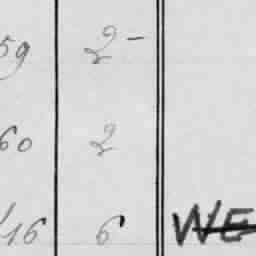 59 2-
60 2
116 6 WE